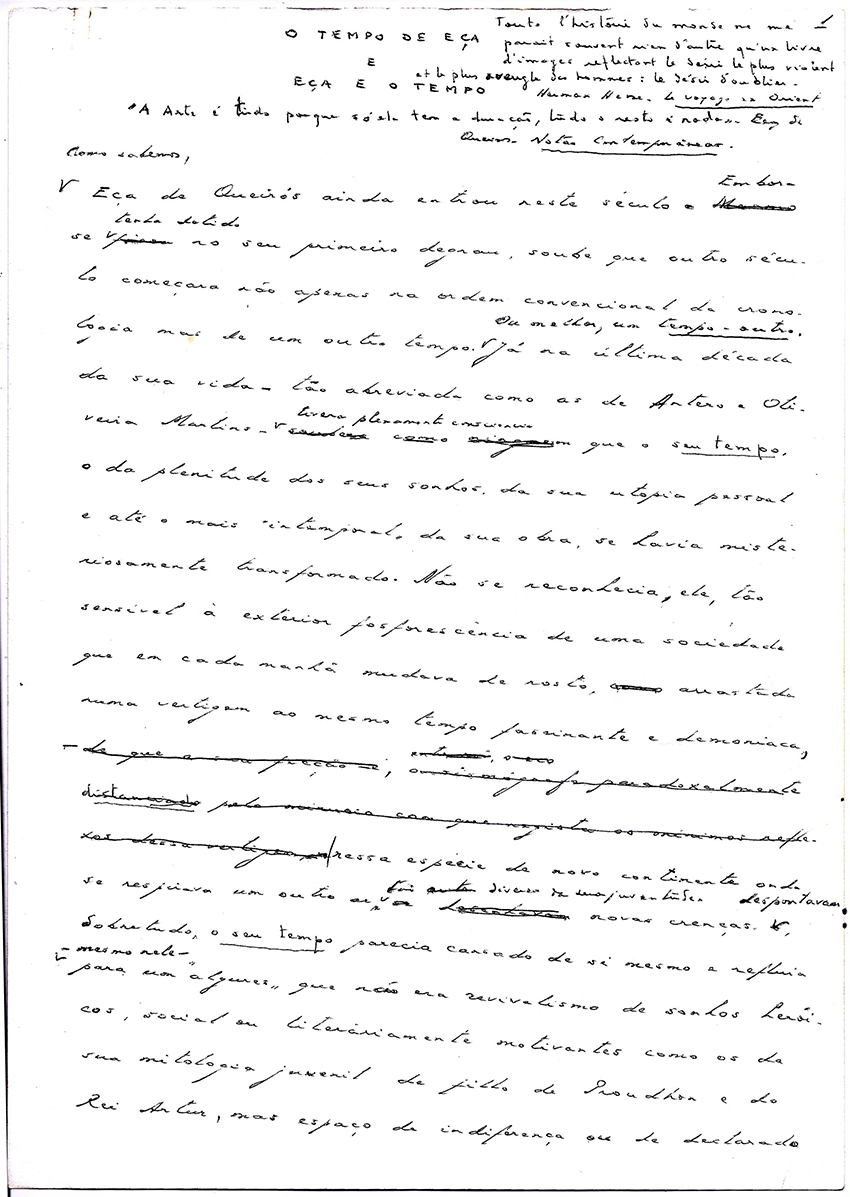 1
O TEMPO DE EÇA
E
EÇA E O TEMPO
Toute l'histoire du monde ne me
parait souvent rien d'autre qu'un livre
d'images reflectant le désir le plus violent
et le plus aveugle des hommes: le désir d'oublier.
Herman Hesse. Le voyage en Orient
"A Arte é tudo porque só ela tem a duração, tudo o resto é nada". Eça de
Queirós. Notas Contemporâneas.
Como sabemos,
Eça de Queirós ainda entrou neste século e Embor-
se tenha detido no seu primeiro degrau, soube que outro sécu-
lo começara não apenas na ordem convencional da crono-
Ou melhor, um tempo-outro.
logia mas de um outro tempo. Já na última década
da sua vida – tão abreviada como as de Antero e Oli-
tivera plenamente consciência
veira Martins – como em que o seu tempo,
o da plenitude dos seus sonhos, da sua utopia pessoal
e até o mais "intemporal" da sua obra, se havia miste-
riosamente transformado. Não se reconhecia, ele, tão
sensível à exterior fosforescência de uma sociedade
que em cada manhã mudava de rosto, como arrastada
numa vertigem ao mesmo tempo fascinante e demoníaca,
– de que a sua ficção é, o paradoxalmente
distanciado pela minúcia com que regista os mínimos refle-
xos dessa vertigem, nessa espécie de novo continente onde
se respirava um outro ar, diverso da sua juventude despontavam
novas crenças.
Sobretudo, o seu tempo parecia cansado de si mesmo e refluia
– mesmo nele –
para um "algures" que não era revivalismo de sonhos herói-
cos, social ou literáriamente motivantes como os da
sua mitologia juvenil de filho de Proudhon e do
Rei Artur, mas espaço de indiferença ou de declarado